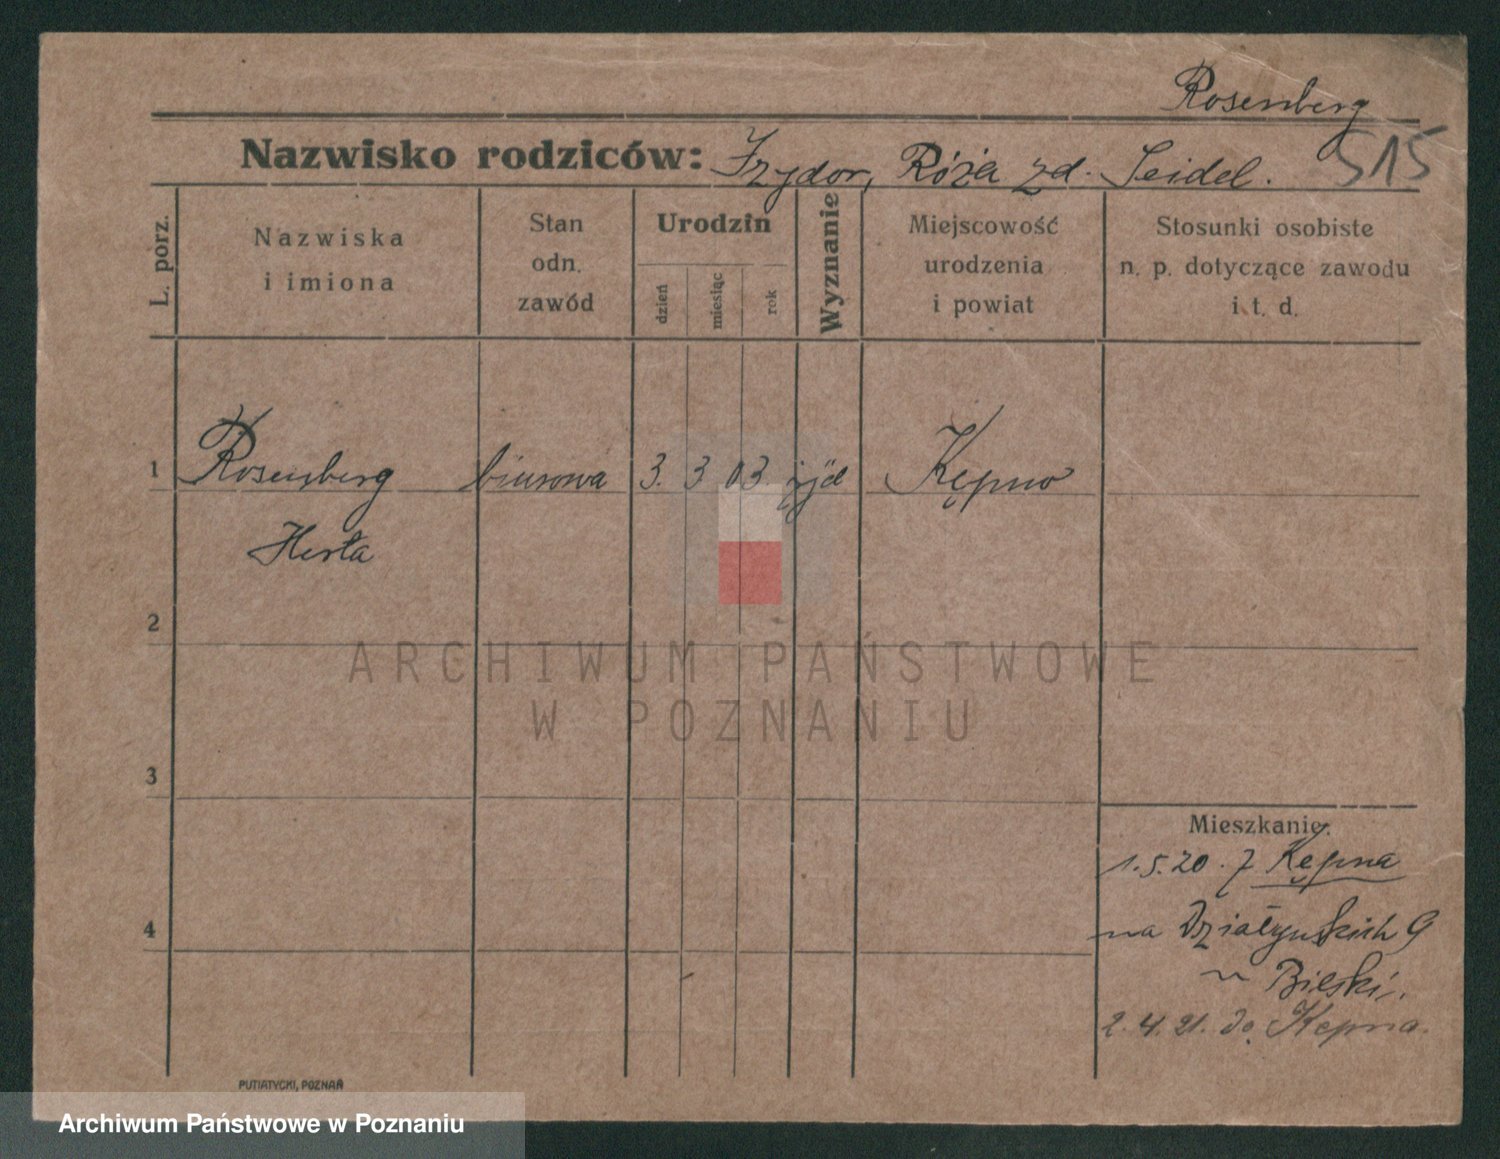 Rosenberg
515
Nazwisko rodziców: Izydor, Róża zd. Seidel.
L. porz.
Nazwiska
i imiona
Stan
odn.
zawód
Urodzin
dzień
miesiąc
rok
Wyznanie
Miejscowość
urodzenia
i powiat
Stosunki osobiste
n. p. dotyczące zawodu
i t. d.
1 Rosenberg biurowa 3. 3 03. żyd Kępno
Herta
2
3
4
ARCHIWUM PAŃSTWOWE
W POZNANIU
Mieszkanie:
1.5.20. z Kępna
na Działyńskich 9
u Bilski.
2.4.21. do Kępna.
PUTIATYCKI, POZNAŃ
Archiwum Państwowe w Poznaniu